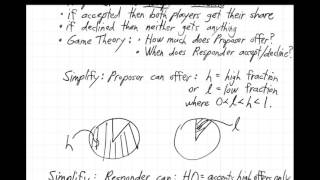 • if accepted then both players get their share
• if declined then neither gets anything
• Game Theory: • How much does Proposor offer?
• When does Responder accept/decline?
Simplify: Proposor can offer: h = high fraction
or l = low fraction
where 0<l<h<1.
h
l
Simplify: Responder can: H = accepts high offers only